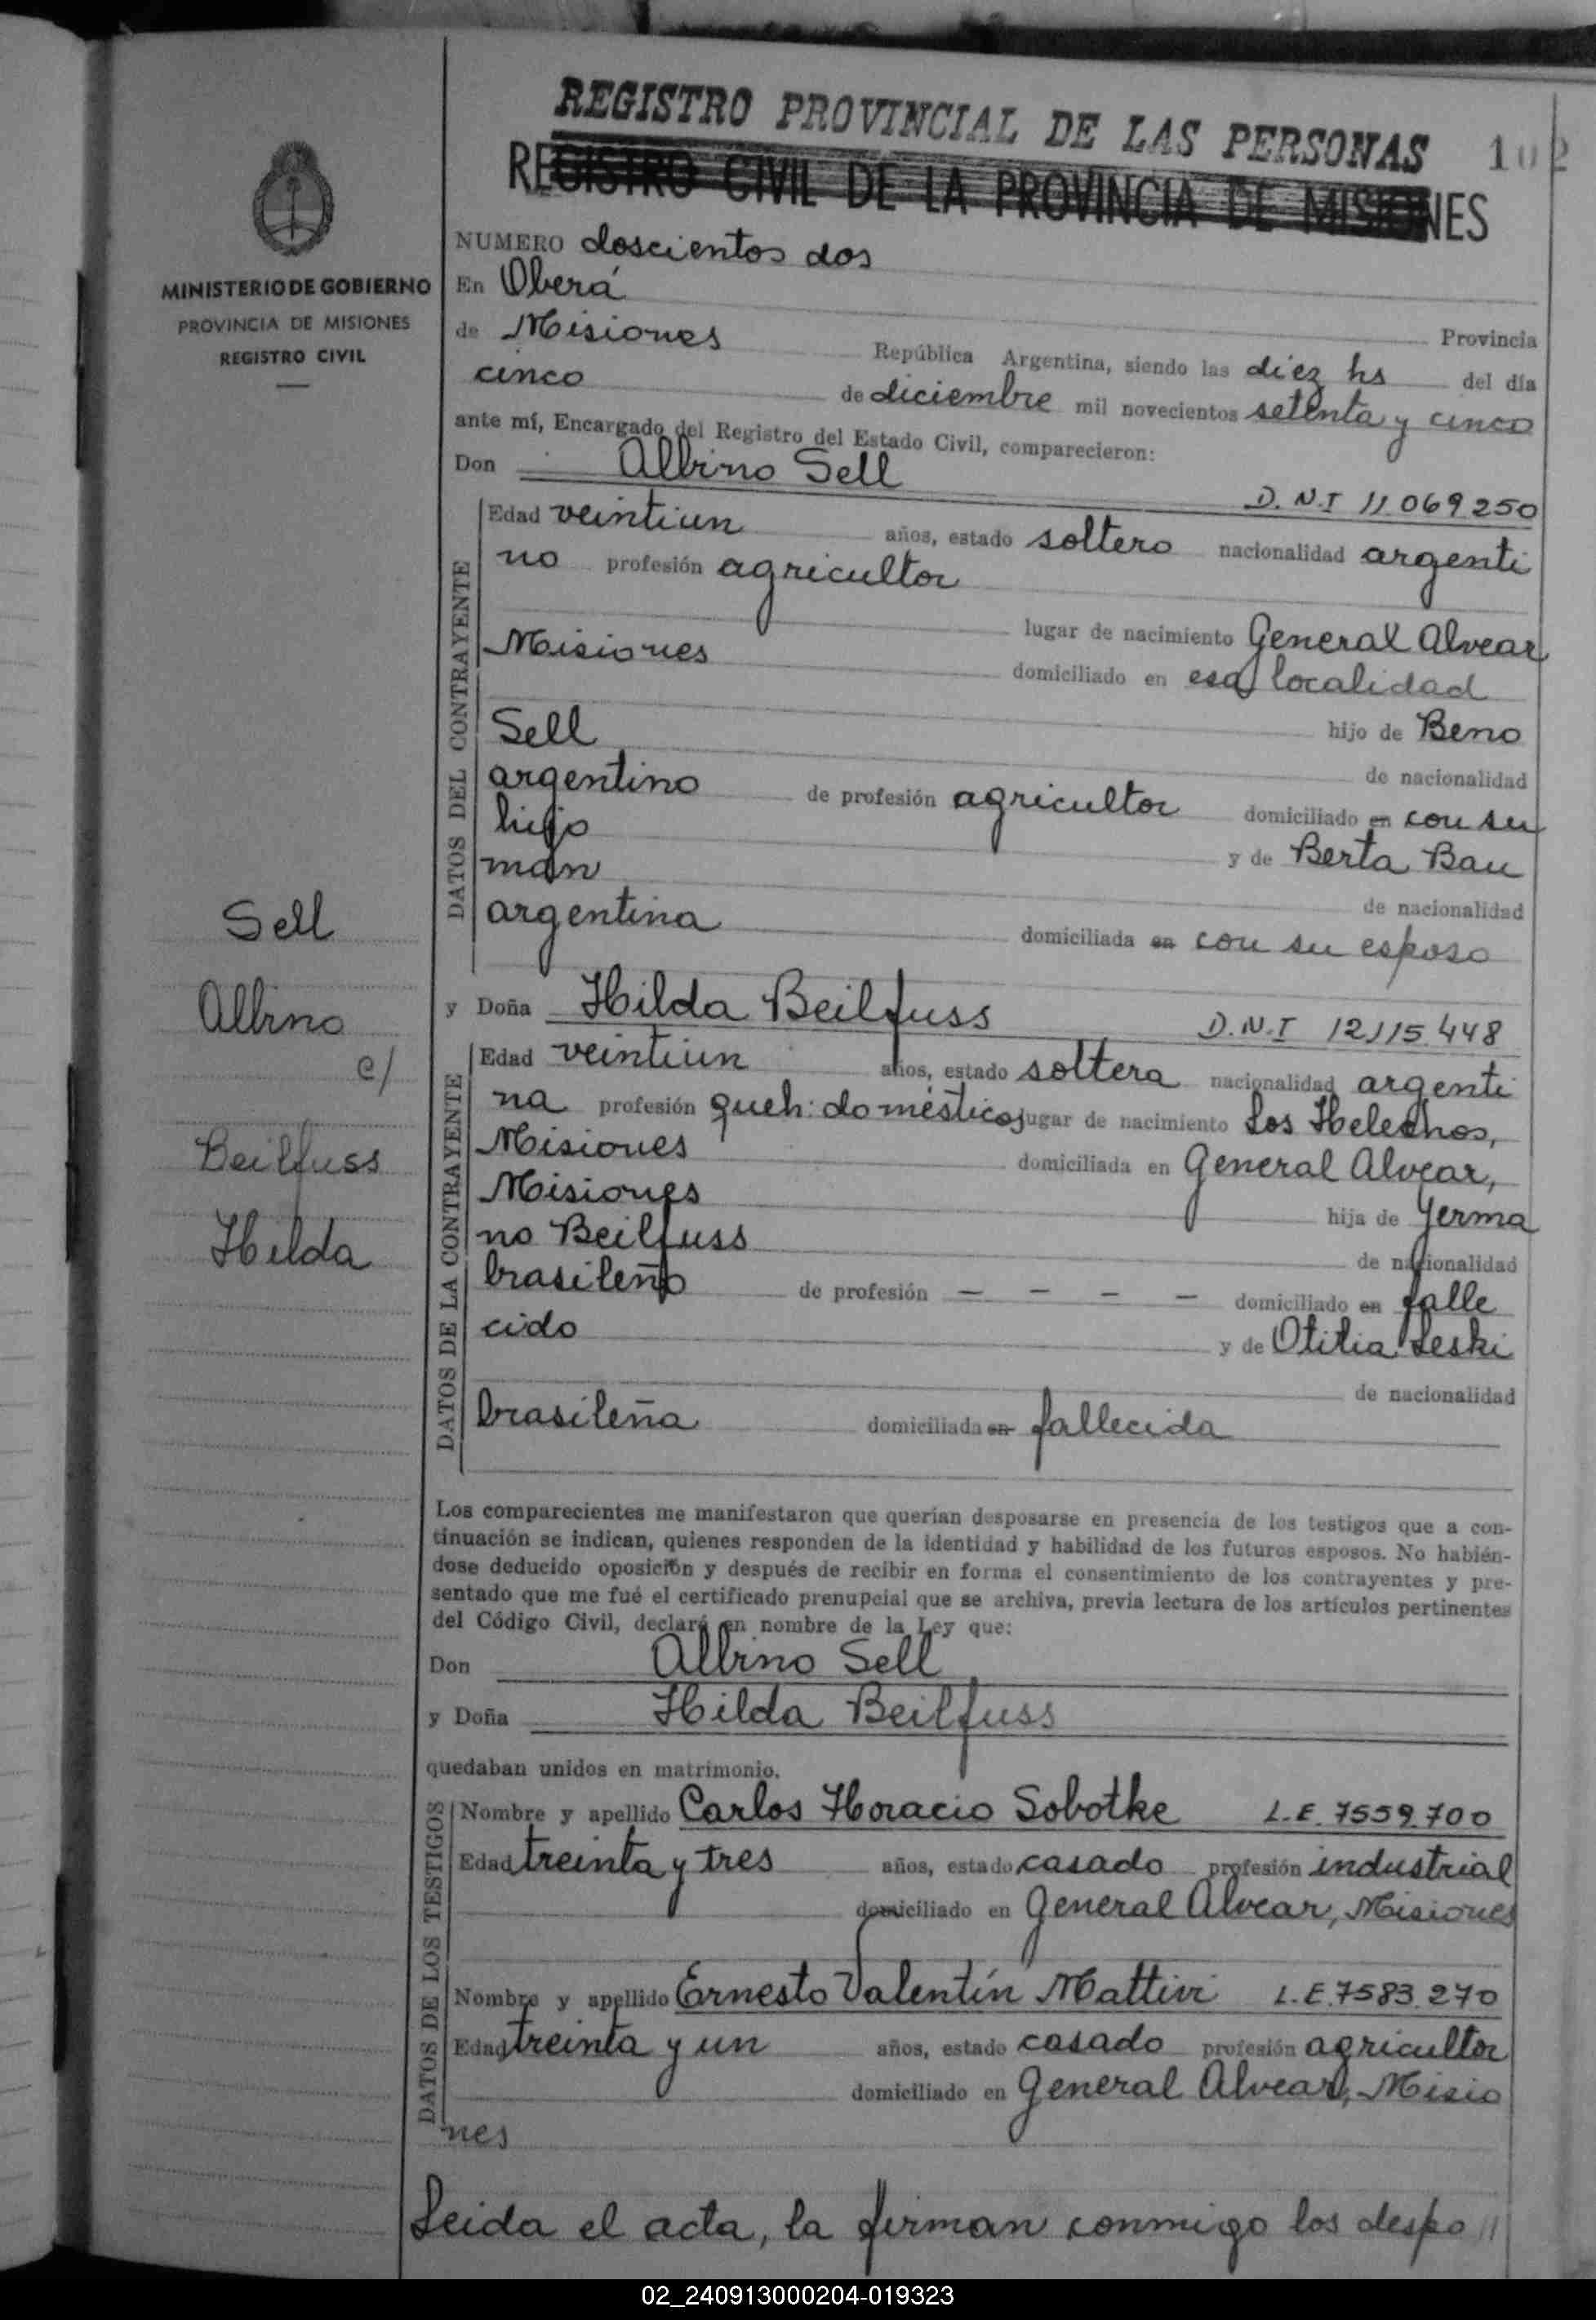 REGISTRO PROVINCIAL DE LAS PERSONAS 102
REGISTRO CIVIL DE LA PROVINCIA DE MISIONES
MINISTERIO DE GOBIERNO
PROVINCIA DE MISIONES
REGISTRO CIVIL
NUMERO doscientos dos
En Oberá
Provincia
de Misiones República Argentina, siendo las diez hs del día
cinco de diciembre mil novecientos setenta y cinco
ante mí, Encargado del Registro del Estado Civil, comparecieron:
Don Albino Sell D.N.I 11.069.250
DATOS DEL CONTRAYENTE
Edad veintiun años, estado soltero nacionalidad argenti
no profesión agricultor
lugar de nacimiento General Alvear
Misiones domiciliado en esa localidad
hijo de Beno
Sell de nacionalidad
argentino de profesión agricultor domiciliado en con su
hijo y de Berta Bau
man de nacionalidad
argentina domiciliada en con su esposo
Sell
Albino
c/
Beilfuss
Hilda
y Doña Hilda Beilfuss D.N.I 12.115.448
DATOS DE LA CONTRAYENTE
Edad veintiun años, estado soltera nacionalidad argenti
na profesión queh: domésticos lugar de nacimiento Los Helechos,
Misiones domiciliada en General Alvear,
Misiones hija de Germa
no Beilfuss de nacionalidad
brasileño de profesión - - - - domiciliado en falle
cido y de Otilia Leski
de nacionalidad
brasileña domiciliada en fallecida
Los comparecientes me manifestaron que querían desposarse en presencia de los testigos que a con-
tinuación se indican, quienes responden de la identidad y habilidad de los futuros esposos. No habién-
dose deducido oposición y después de recibir en forma el consentimiento de los contrayentes y pre-
sentado que me fué el certificado prenupcial que se archiva, previa lectura de los artículos pertinentes
del Código Civil, declaré en nombre de la Ley que:
Don Albino Sell
y Doña Hilda Beilfuss
quedaban unidos en matrimonio.
DATOS DE LOS TESTIGOS
Nombre y apellido Carlos Horacio Sobotke L.E. 7559.700
Edad treinta y tres años, estado casado profesión industrial
domiciliado en General Alvear, Misiones
Nombre y apellido Ernesto Valentín Mattivi L.E. 7583.270
Edad treinta y un años, estado casado profesión agricultor
domiciliado en General Alvear, Misio
nes
Leida el acta, la firman conmigo los despo //
02_240913000204-019323